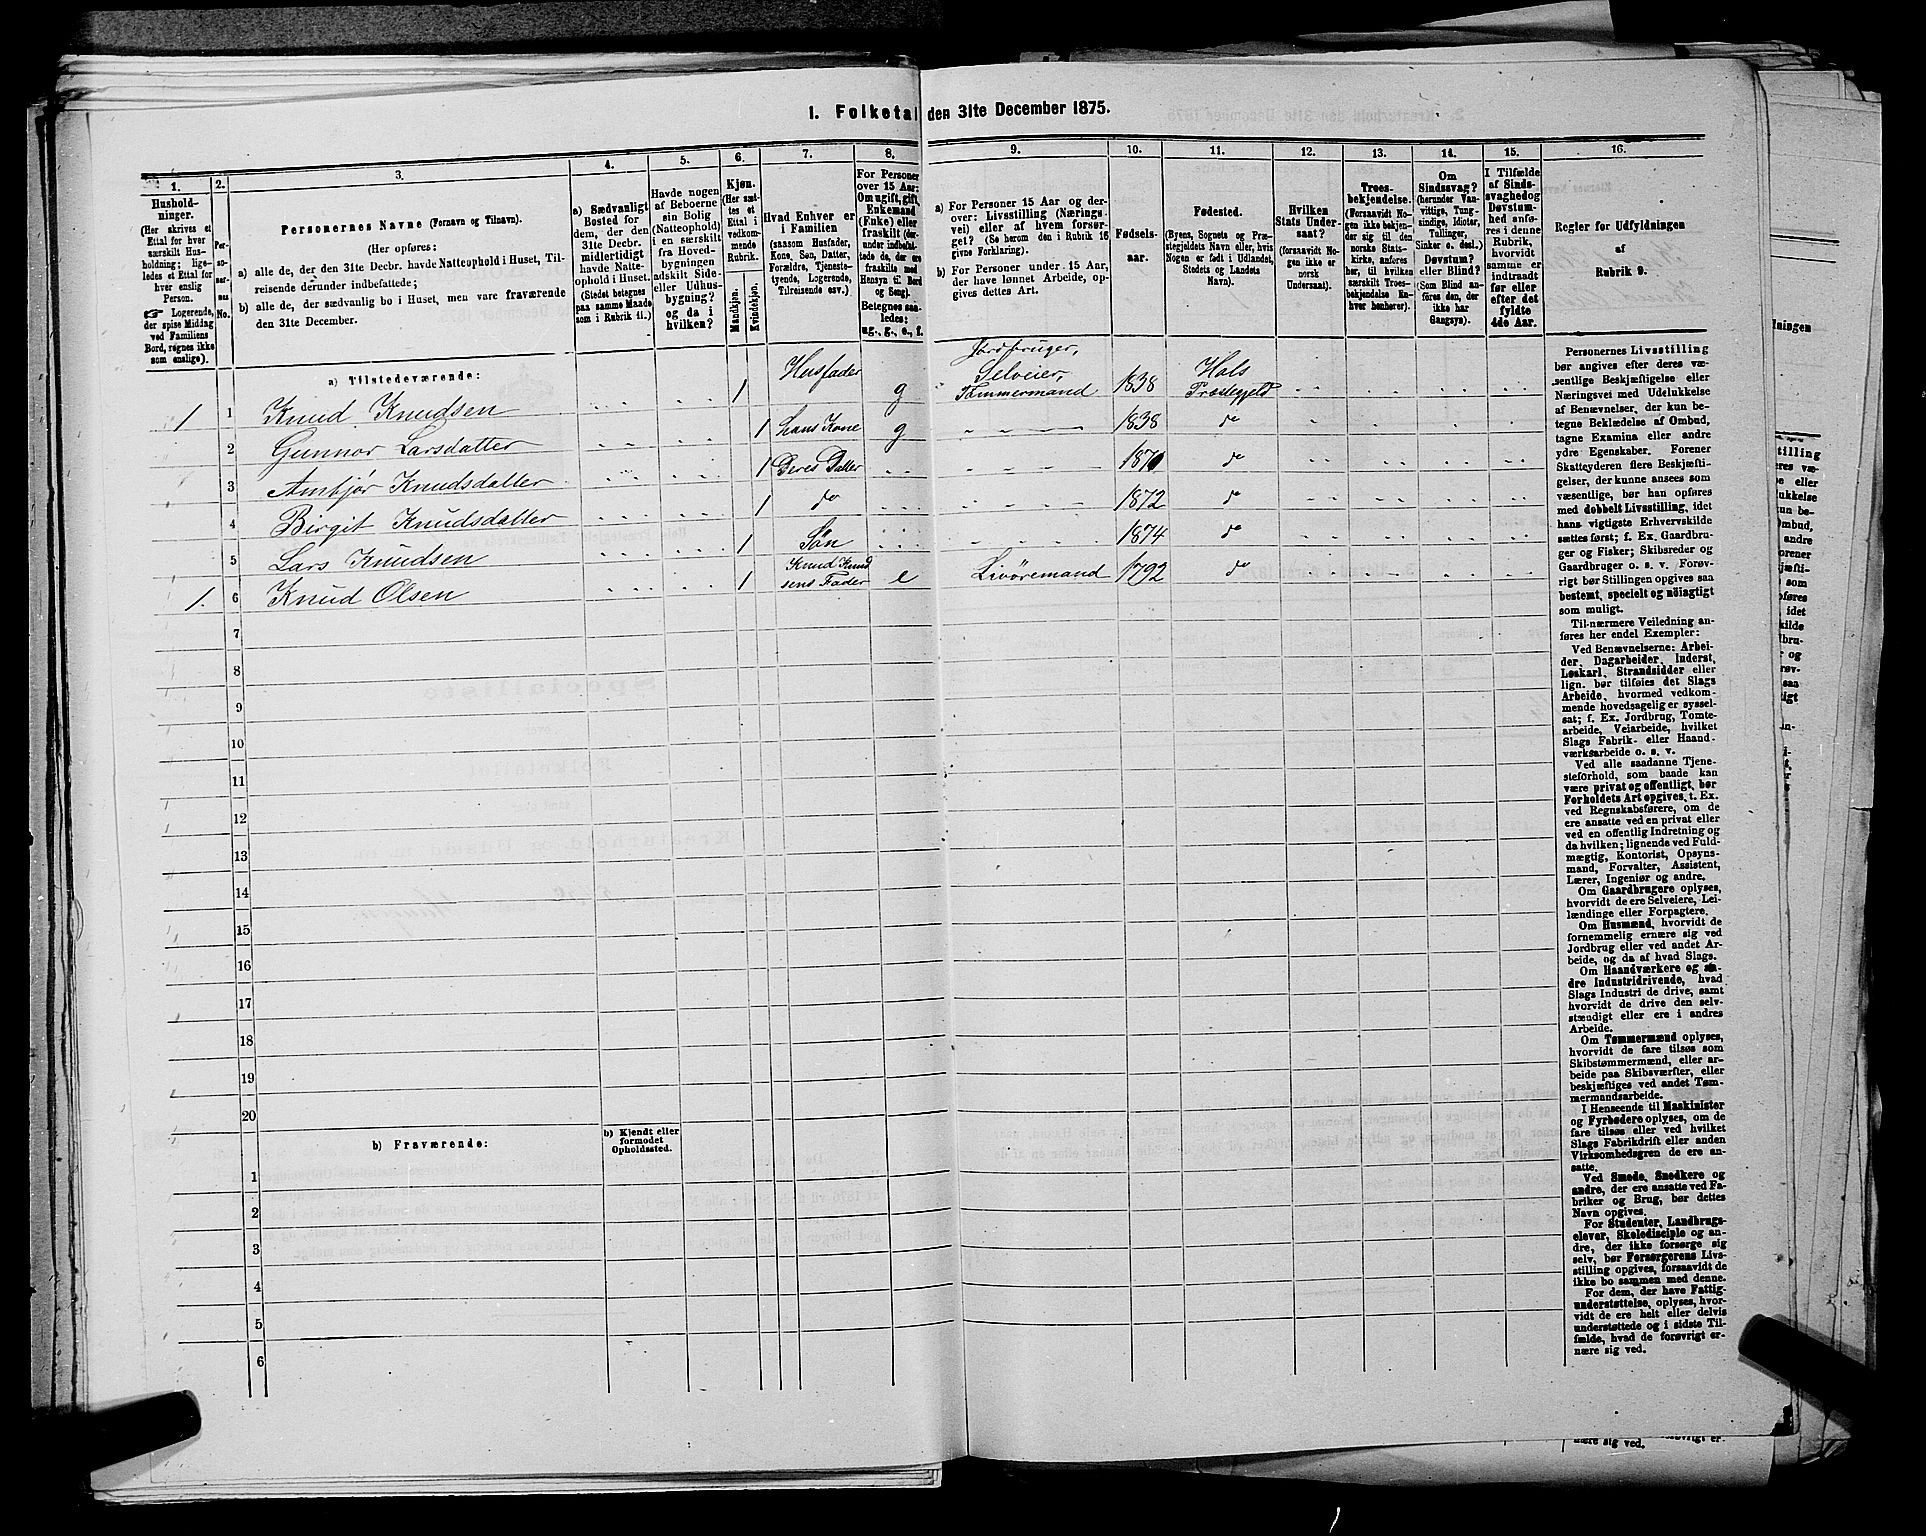 I. Folketal den 31te December 1875.
1.
2.
3.
4.
5.
6.
7.
8.
9.
10.
11.
12.
13.
14.
15.
16.
Husholdninger.
(Her skrives et
Ettal for hver
særskilt Husholdning;
ligeledes et Ettal for
hver enslig
Person.
☞ Logerende,
der spise Middag
ved Familiens
Bord, regnes ikke
som enslige).
Personernes No.
Personernes Navne (Fornavn og Tilnavn).
(Her opføres:
a) alle de, der den 31te Decbr. havde Natteophold i Huset, Tilreisende derunder indbefattede;
b) alle de, der sædvanlig bo i Huset, men vare fraværende
den 31te December.
a) Sædvanligt
Bosted for
dem, der den
31te Decbr.
midlertidigt
havde Natteophold i Huset.
(Stedet betegnes
paa samme Maade
som i Rubrik 11.)
Havde nogen
af Beboerne
sin Bolig
(Natteophold)
i en særskilt
fra Hovedbygningen
adskilt Side-
eller Udhusbygning?
og da i
hvilken?
Kjøn.
(Her sættes et
Ettal i
vedkommende
Rubrik.
Mandkjøn.
Kvindekjøn.
Hvad Enhver er
i Familien
(saasom Husfader,
Kone, Søn, Datter,
Forældre, Tjenestetyende, Logerende,
Tilreisende osv.)
For Personer
over 15 Aar:
Om ugift, gift,
Enkemand
(Enke) eller
fraskilt (herunder indbefattede de, der ere
fraskilte med
Hensyn til Bord
og Seng).
Betegnes saaledes:
ug., g., e., f.
a) For Personer 15 Aar og derover: Livsstilling (Næringsvei) eller af hvem forsørget? (Se herom den i Rubrik 16
givne Forklaring).
b) For Personer under 15 Aar,
der have lønnet Arbeide, opgives dettes Art.
Fødselsaar.
Fødested.
(Byens, Sognets og Præstegjeldets Navn eller, hvis
Nogen er født i Udlandet,
Stedets og Landets
Navn).
Hvilken
Stats Undersaat?
(forsaavidt Nogen ikke er
norsk
Undersaat).
Troesbekjendelse.
(Forsaavidt Nogen ikke bekjender sig til den
norske Statskirke, anføres
her, til hvilken
særskilt Troesbekjendelse Enhver henhører).
Om
Sindssvag?
(herunder Vanvittige, Tungsindige, Idioter,
Tullinger,
Sinker o. desl.)
Døvstum?
eller Blind?
(Som Blind anføres den, der
ikke har
Gangsyn).
I Tilfælde
af Sindssvaghed og
Døvstumhed anføres i denne
Rubrik,
hvorvidt
samme er
indtraadt
før eller
efter det
fyldte
4de Aar.
Regler for Udfyldningen
af
Rubrik 9.
a) Tilstedeværende:
1 1 Knud Knudsen 1 Husfader g Jordbruger, Selveier, Tømmermand 1838 Hols Præstegjeld
2 Gunnor Larsdatter 1 hans Kone g 1838 do
3 Ambjør Knudsdatter 1 Deres Datter 1870 do
4 Birgit Knudsdatter 1 do 1872 do
5 Lars Knudsen 1 Søn 1874 do
1. 6 Knud Olsen 1 Knud Knudsens Fader e Livöremand 1792 do
7
8
9
10
11
12
13
14
15
16
17
18
19
20
b) Fraværende:
b) Kjendt eller
formodet
Opholdssted.
1
2
3
4
5
6
Personernes Livsstilling
bør angives efter deres væsentlige Beskjæftigelse eller
Næringsvei med Udelukkelse
af Benævnelser, der kun betegne Beklædelse af Ombud,
tagne Examina eller andre
ydre Egenskaber. Forener
Skatteyderen flere Beskjæftigelser, der kunne ansees som
væsentlige, bør han opføres
med dobbelt Livsstilling, idet
hans vigtigste Erhvervskilde
sættes først; f. Ex. Gaardbruger og Fisker; Skibsreder og
Gaardbruger o. s. v. Forøvrigt bør Stillingen opgives saa
bestemt, specielt og nöiagtigt
som muligt.
Til nærmere Veiledning anføres her endel Exempler:
Ved Benævnelserne: Arbeider, Dagarbeider, Inderst,
Løskarl, Strandsidder eller
lign. bør tilføies det Slags
Arbeide, hvormed vedkommende hovedsagelig er sysselsat; f. Ex. Jordbrug, Tomtearbeide, Veiarbeide, hvilket
Slags Fabrik- eller Haandværksarbeide o. s. v.
Ved alle saadanne Tjenesteforhold, som baade kan
være privat og offentligt, bør
Forholdets Art opgives, t. Ex.
ved Regnskabsførere, om de
ere ansatte ved en privat eller
ved en offentlig Indretning og
da hvilken; lignende ved Fuldmægtig, Kontorist, Opsynsmand, Forvalter, Assistent,
Lærer, Ingeniør og andre.
Om Gaardbrugere oplyses,
hvorvidt de ere Selveiere, Leilændinge eller Forpagtere.
Om Husmænd, hvorvidt de
fornemmelig ernære sig ved
Jordbrug eller ved andet Arbeide, og da af hvad Slags.
Om Haandværkere og andre Industridrivende, hvad
Slags Industri de drive, samt
hvorvidt de drive den selvstændigt eller ere i andres
Arbeide.
Om Tømmermænd oplyses,
hvorvidt de fare tilsøs som
Skibstømmermænd, eller arbeide paa Skibsværfter, eller
beskjæftiges ved andet Tømmermandsarbeide.
I Henseende til Maskinister
og Fyrbødere oplyses, om de
fare tilsøs eller ved hvilket
Slags Fabrikdrift eller anden
Virksomhedsgren de ere ansatte.
Ved Smede, Snedkere og
andre, der ere ansatte ved Fabriker og Brug, bør dettes
Navn opgives.
For Studenter, Landbrugselever, Skoledisciple og andre, der ikke forsørge sig
selv, bør Forsørgerens Livsstilling opgives, forsaavidt de
ikke bo sammen med denne.
For dem, der have Fattigunderstøttelse, oplyses, hvorvidt de ere helt eller delvis
understøttede og i sidste Tilfælde, hvad de forøvrigt ernære sig ved.